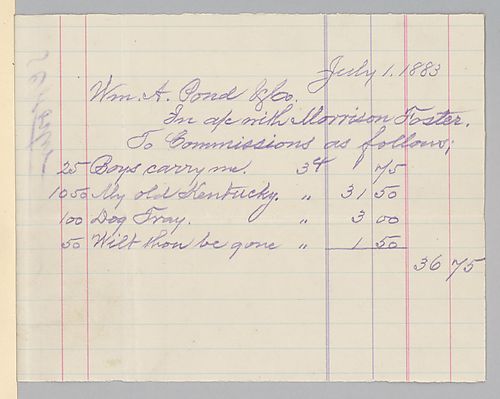 July 1. 1883
Wm. A. Pond & Co.
In a/c with Morrison Foster.
To Commissions as follows;
25 Boys carry me. 3¢ 75
1050 My old Kentucky. " 31 50
100 Dog Tray. " 3 00
50 Wilt thou be gone " 1 50
36 75